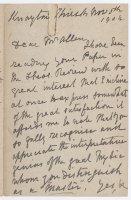 Knayton Thirsk Nov 5th
1904
Dear Mr Allen, I have been
reading your Paper in
the Shos. Review with so
great interest that I incline
at once to express somewhat
of the great satisfaction it
affords me to note that you
so fully recognise and
appreciate the interpretative
genius of the great
whom you distinguish
as a Master